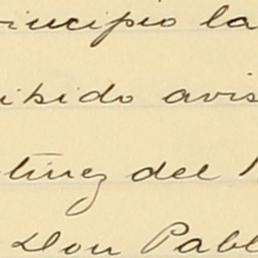 rincipio la
ibido avis
tinez del
Don Pabl